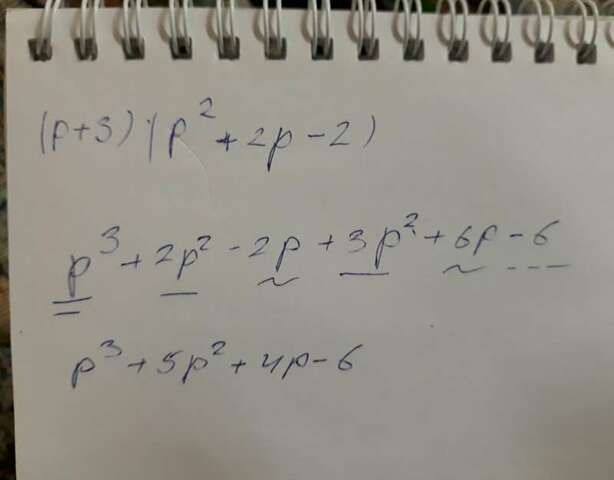 (p+3)(p² + 2p - 2)
p³ + 2p² - 2p + 3p² + 6p - 6
p³ + 5p² + 4p - 6